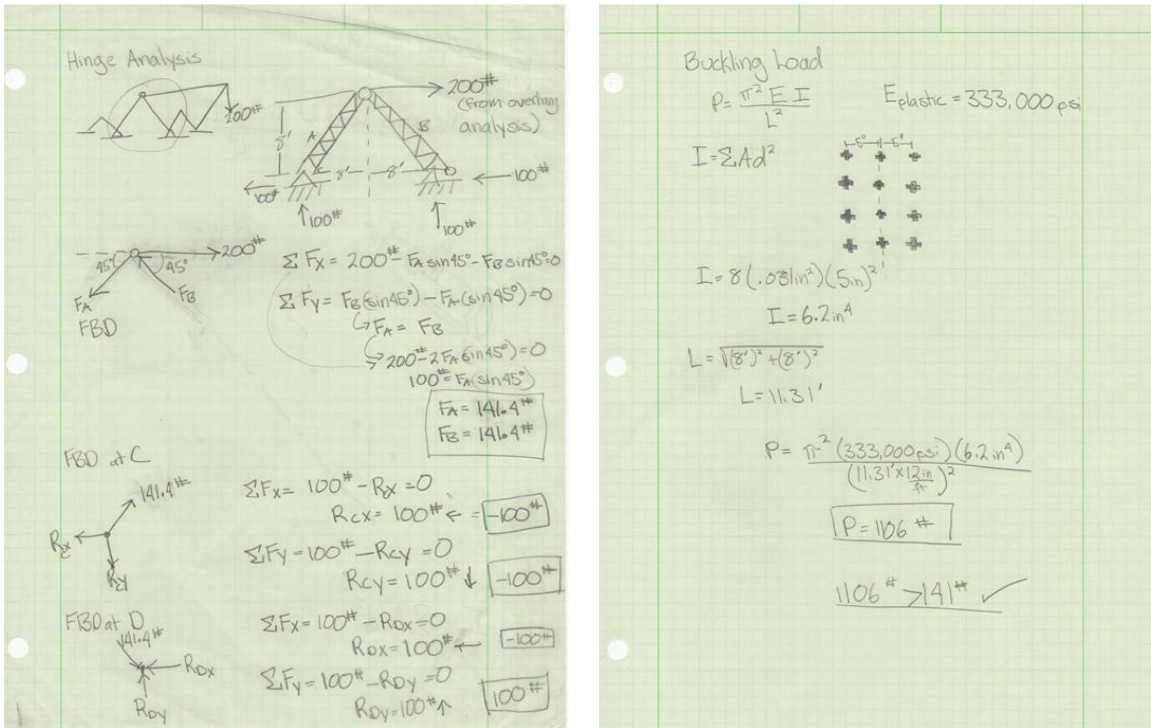 Hinge Analysis
100#
200#
(from overhang
analysis)
8'
A
B
8'
8'
100#
100#
100#
100#
200#
45°
45°
FA
FB
FBD
ΣFx = 200# - FA sin45° - FB sin45° = 0
ΣFy = FB(sin45°) - FA(sin45°) = 0
FA = FB
200# - 2FA(sin45°) = 0
100# = FA(sin45°)
FA = 141.4#
FB = 141.4#
FBD at C
141.4#
Rcx
Rcy
ΣFx = 100# - Rcx = 0
RCX = 100# ← = -100#
ΣFy = 100# - RCY = 0
RCY = 100# ↓ -100#
FBD at D
141.4#
RDX
RDY
ΣFx = 100# - RDX = 0
RDX = 100# ← -100#
ΣFy = 100# - RDY = 0
RDY = 100# ↑ 100#
Buckling Load
P = π² E I / L²
Eplastic = 333,000 psi
I = ΣAd²
5" 5"
I = 8(.031in²)(5in)²
I = 6.2in⁴
L = √(8')² + (8')²
L = 11.31'
P = π² (333,000psi)(6.2in⁴) / (11.31' × 12in/ft)²
P = 1106#
1106# > 141# ✓